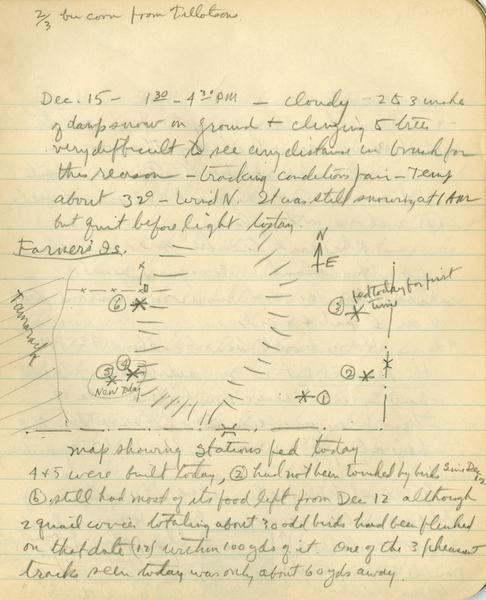 2/3 bu corn from Tillotsons.
Dec. 15 - 1³⁰ - 4³⁰ PM - cloudy - 2 to 3 inches
of damp snow on ground + clinging to trees
very difficult to see any distance in brush for
this reason - tracking conditions fair - Temp
about 32° - Wind N. It was still snowing at 1 AM
but quit before light today.
Farmer's Is.
N
E
Tamarack
6
3 fed today for first
time
5 4
New today
2
1
map showing stations fed today
4 + 5 were built today, 2 had not been touched by birds since Dec 12
6 still had most of its food left from Dec 12 although
2 quail covies totaling about 30 odd birds had been flushed
on that date (12) within 100 yds of it. One of the 3 pheasant
tracks seen today was only about 60 yds away.